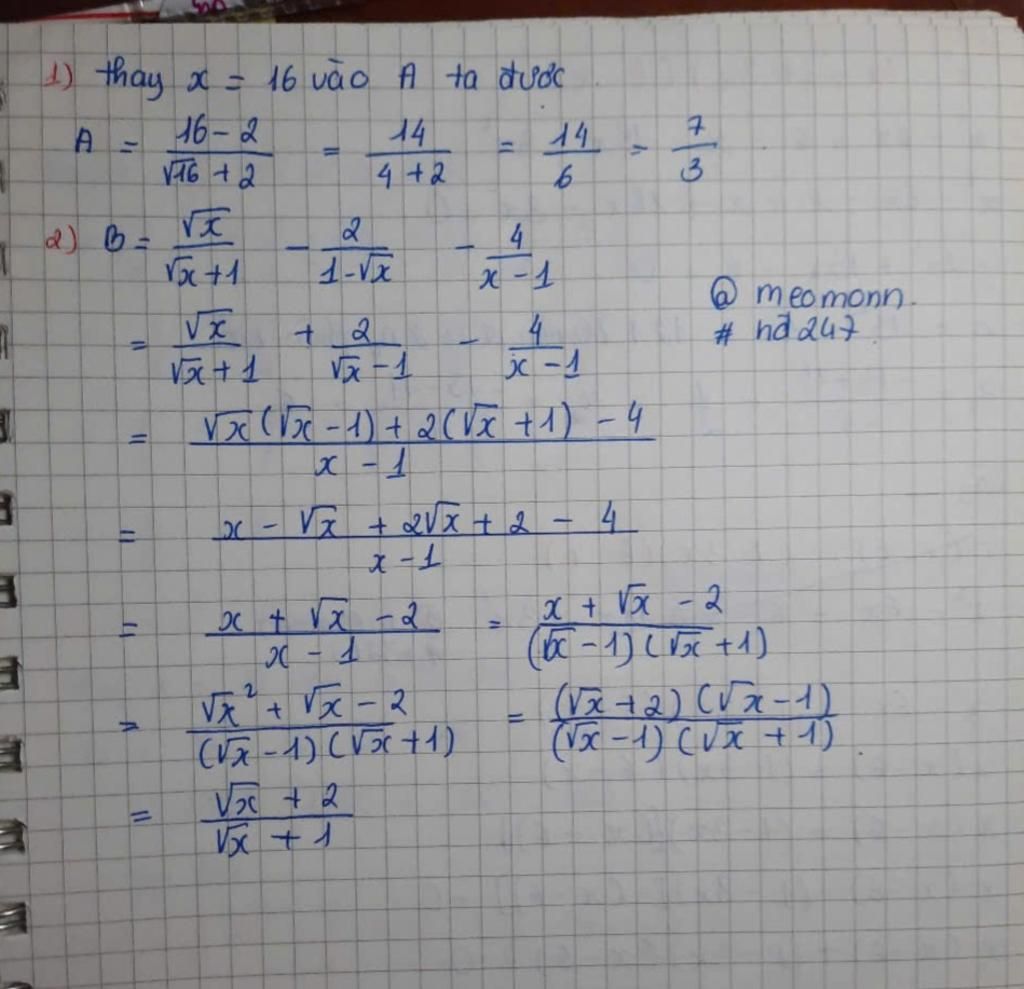 1) thay x = 16 vào A ta được
A = \frac{16-2}{\sqrt{16}+2} = \frac{14}{4+2} = \frac{14}{6} = \frac{7}{3}
2) B = \frac{\sqrt{x}}{\sqrt{x}+1} - \frac{2}{1-\sqrt{x}} - \frac{4}{x-1}
@ meomonn.
= \frac{\sqrt{x}}{\sqrt{x}+1} + \frac{2}{\sqrt{x}-1} - \frac{4}{x-1}
# hđ247
= \frac{\sqrt{x}(\sqrt{x}-1)+2(\sqrt{x}+1)-4}{x-1}
= \frac{x-\sqrt{x}+2\sqrt{x}+2-4}{x-1}
= \frac{x+\sqrt{x}-2}{x-1} = \frac{x+\sqrt{x}-2}{(\sqrt{x}-1)(\sqrt{x}+1)}
= \frac{\sqrt{x}^2+\sqrt{x}-2}{(\sqrt{x}-1)(\sqrt{x}+1)} = \frac{(\sqrt{x}+2)(\sqrt{x}-1)}{(\sqrt{x}-1)(\sqrt{x}+1)}
= \frac{\sqrt{x}+2}{\sqrt{x}+1}